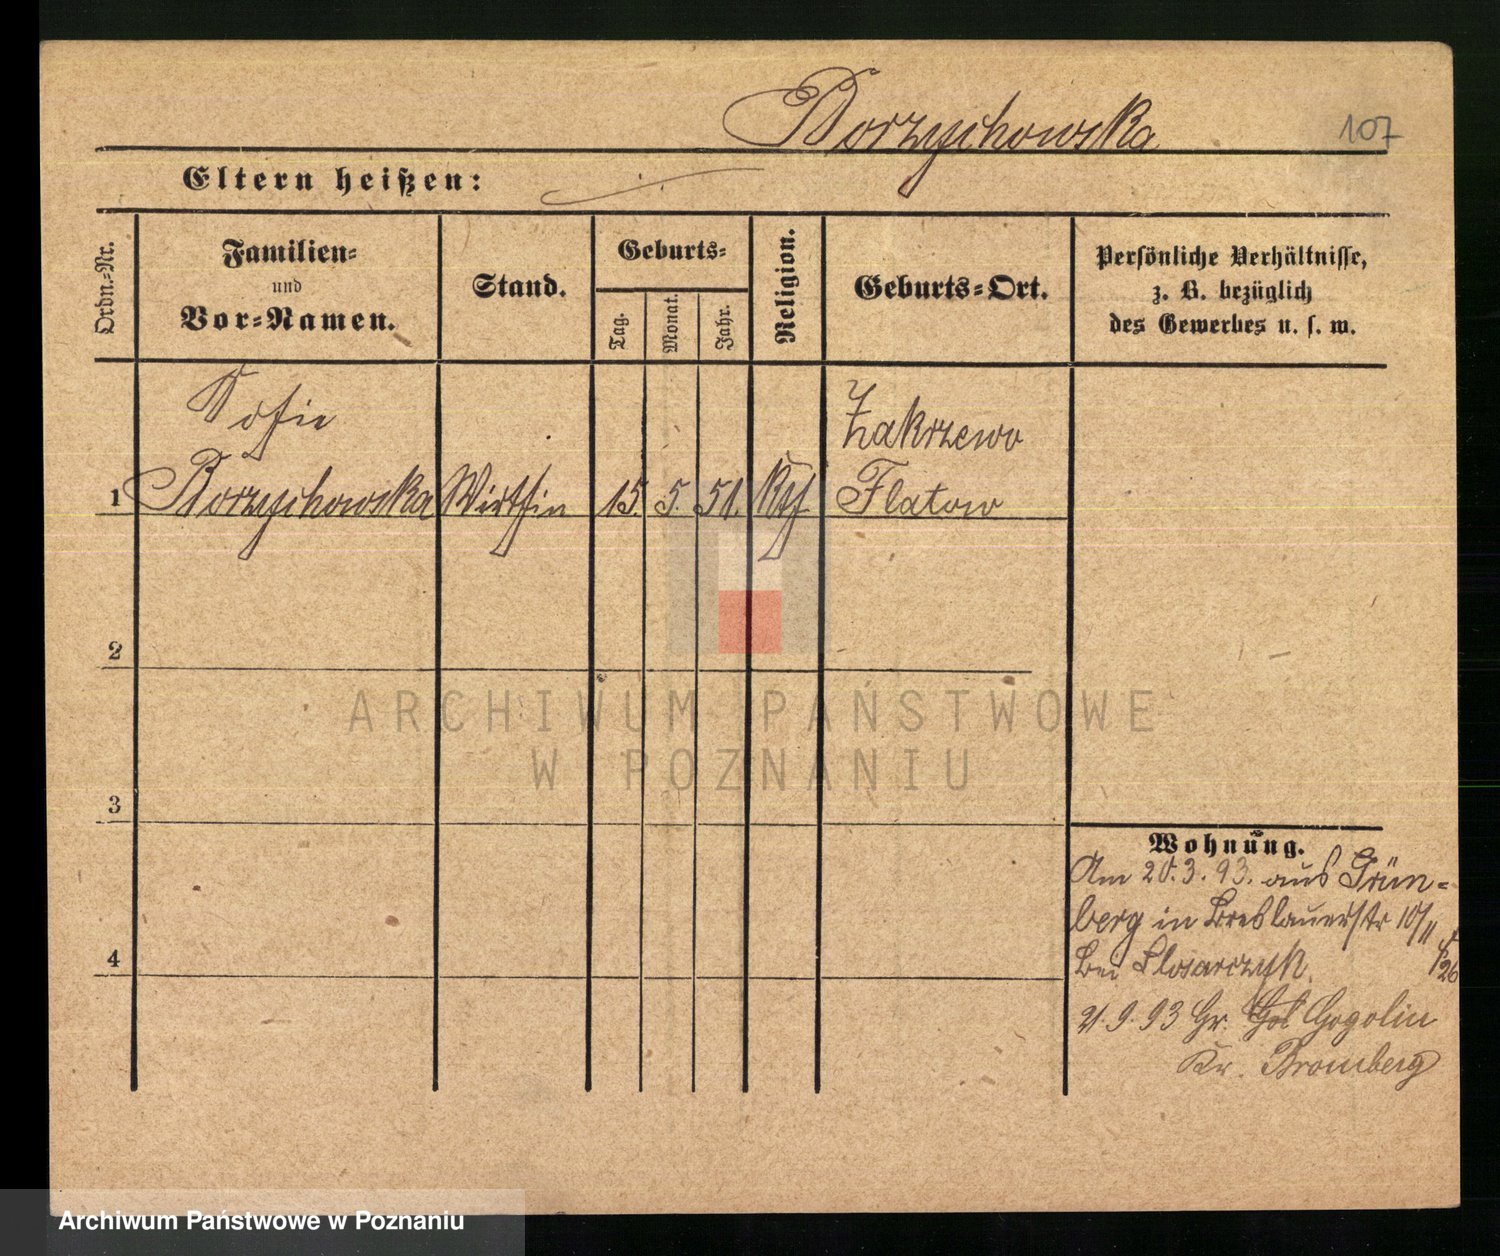 Borzychowska
107
Eltern heißen:
Ordn.-Nr.
Familien-
und
Vor-Namen.
Stand.
Geburts-
Tag.
Monat.
Jahr.
Religion.
Geburts-Ort.
Persönliche Verhältnisse,
z. B. bezüglich
des Gewerbes u. s. w.
Sofie
Zakrzewo
1 Borzychowska Wirthin 15. 5. 51. Kth Flatow
2
3
4
ARCHIWUM PAŃSTWOWE
W POZNANIU
Wohnung.
Am 20.3.93. aus Grün-
berg in Breslauerstr 10/II
bei Slosarczyk.
26
21.9.93 Gr. Gogolin
Kr. Bromberg
Archiwum Państwowe w Poznaniu